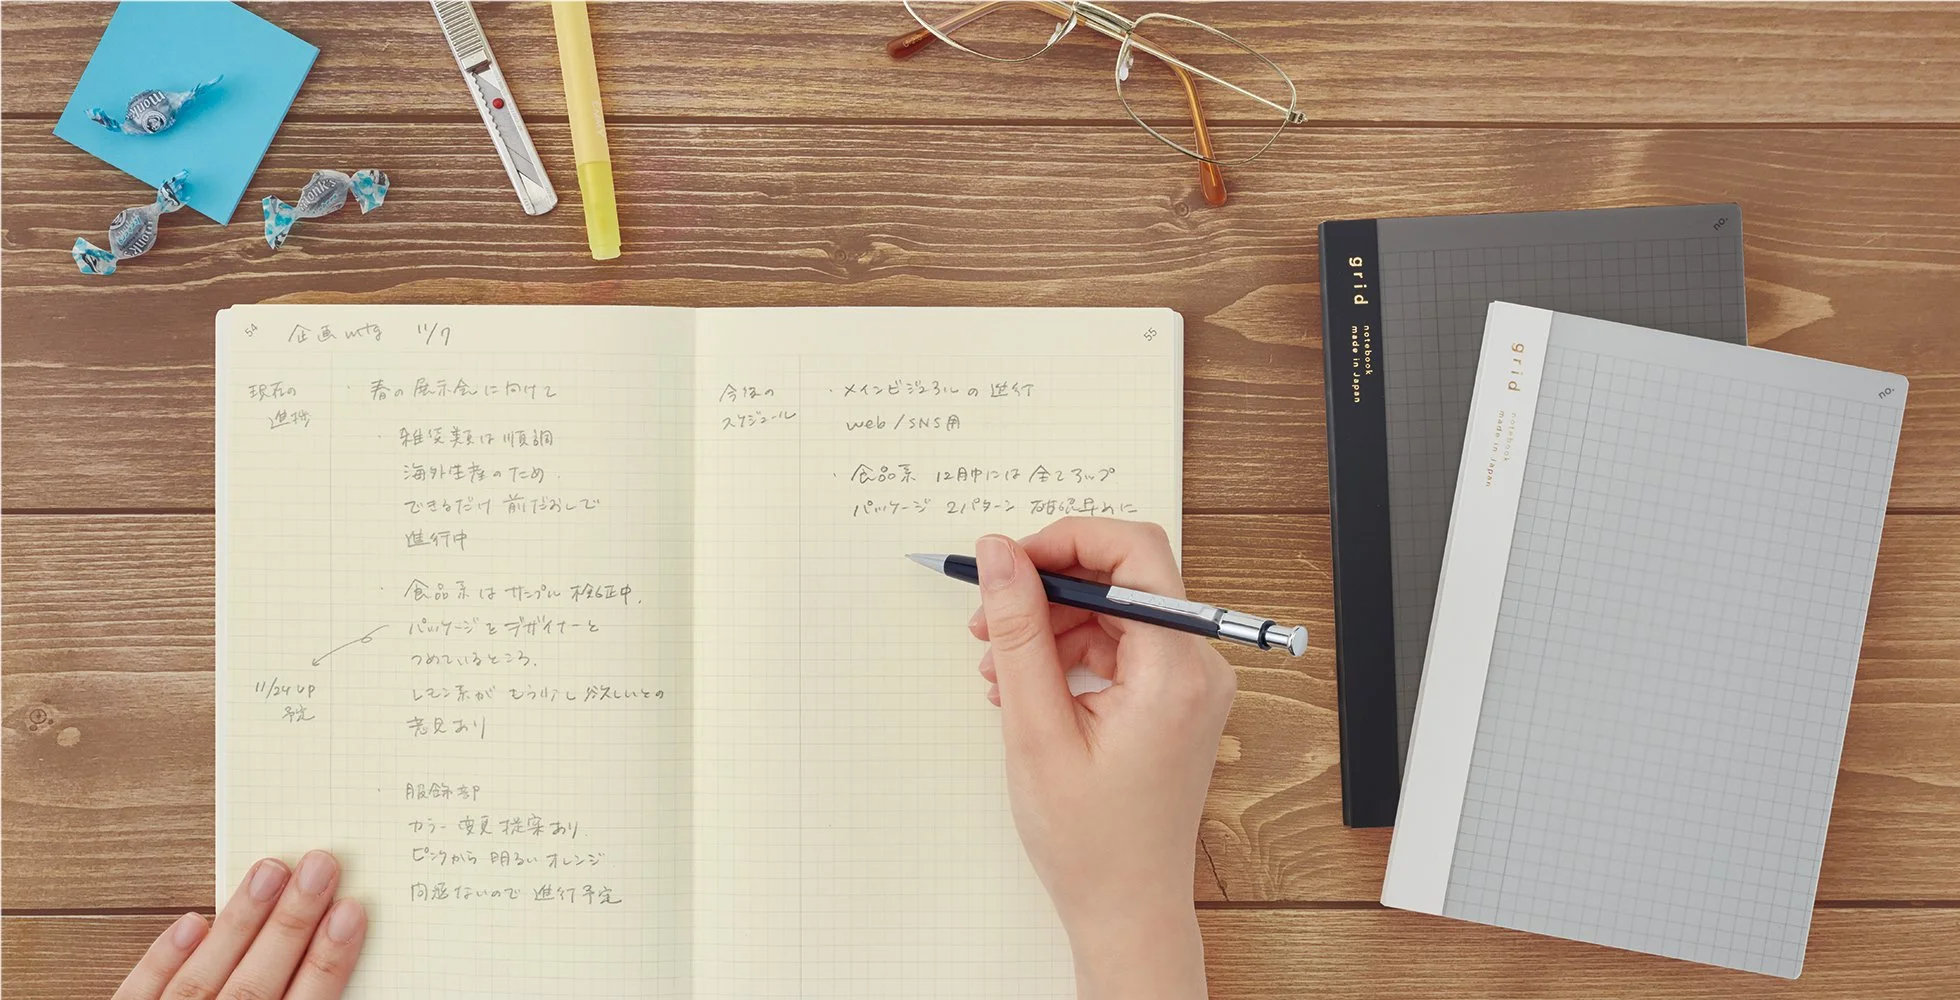 54
企画 mtg 11/7
現在の
進捗
・春の展示会に向けて
・雑貨類は順調
海外生産のため
できるだけ前だおしで
進行中
・食品系はサンプル検証中.
パッケージをデザイナーと
つめているところ.
11/24 UP
予定
レモン系がもう少し欲しいとの
意見あり
・服飾部
カラー変更提案あり.
ピンクから明るいオレンジ
問題ないので進行予定
55
今後の
スケジュール
・メインビジュアルの進行
web/SNS用
・食品系 12月中には全てアップ
パッケージ 2パターン 確認早めに
grid
notebook
made in Japan
no.
grid
notebook
made in Japan
no.